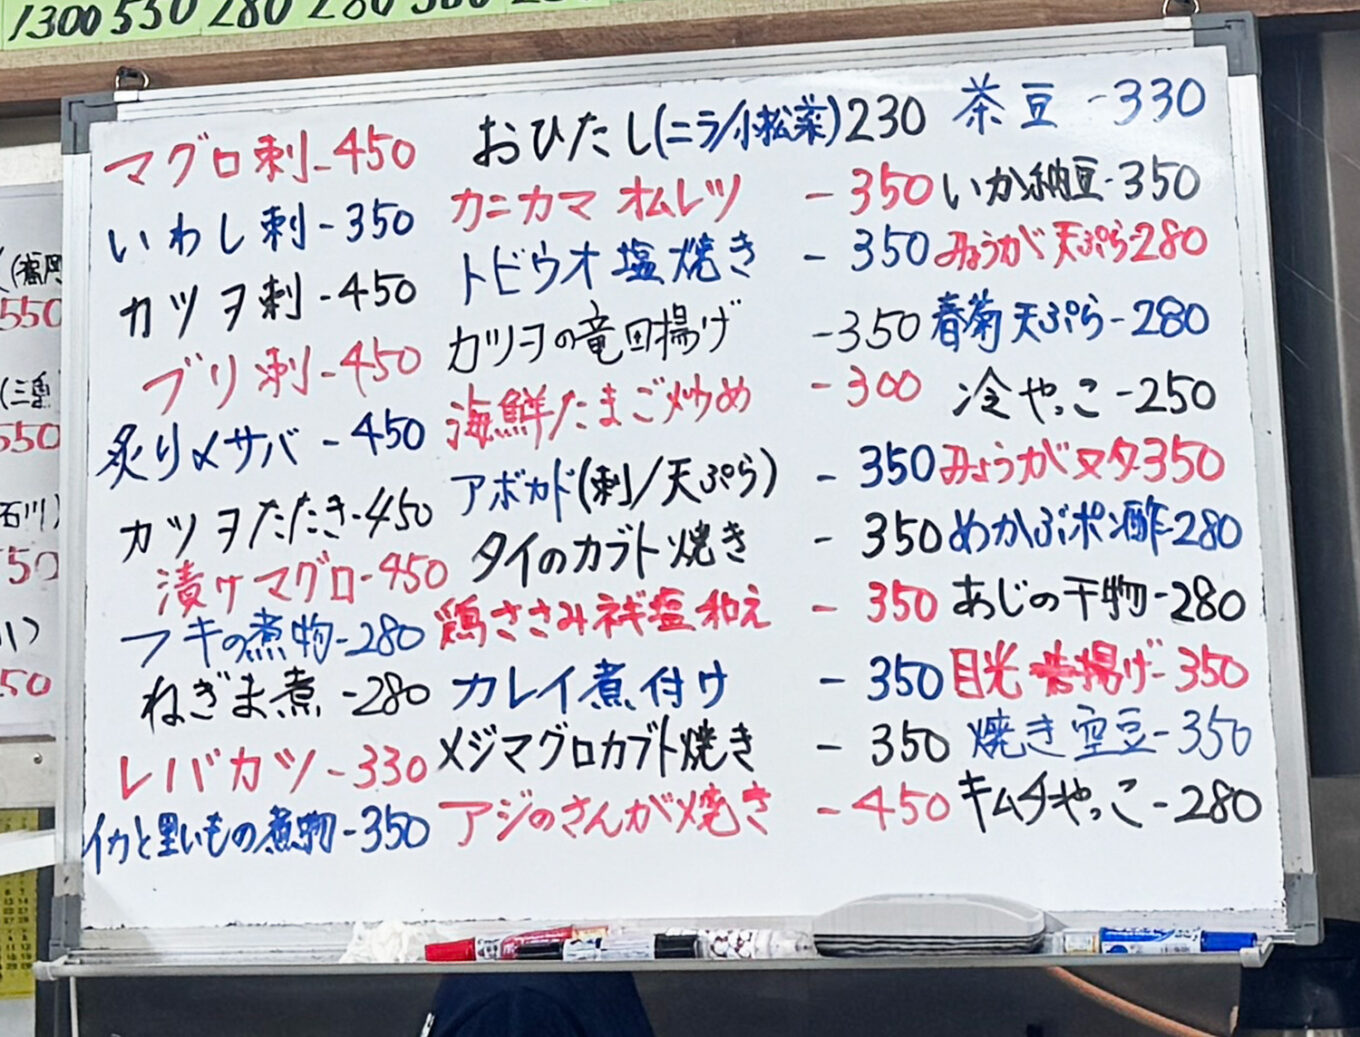 1300 550 280 280
マグロ刺-450
いわし刺-350
カツヲ刺-450
ブリ刺-450
炙り〆サバ-450
カツヲたたき-450
漬ケマグロ-450
フキの煮物-280
ねぎま煮-280
レバカツ-330
イカと里いもの煮物-350
おひたし(ニラ/小松菜)230
カニカマ オムレツ -350
トビウオ塩焼き -350
カツヲの竜田揚げ -350
海鮮たまご炒め -300
アボカド(刺/天ぷら) -350
タイのカブト焼き -350
鶏ささみネギ塩和え -350
カレイ煮付け -350
メジマグロカブト焼き -350
アジのさんが焼き -450
茶豆-330
いか納豆-350
みょうが天ぷら-280
春菊天ぷら-280
冷やっこ-250
みょうがヌタ350
めかぶポン酢-280
あじの干物-280
目光唐揚げ-350
焼き空豆-350
キムチやっこ-280
550
550
石川)
50
50